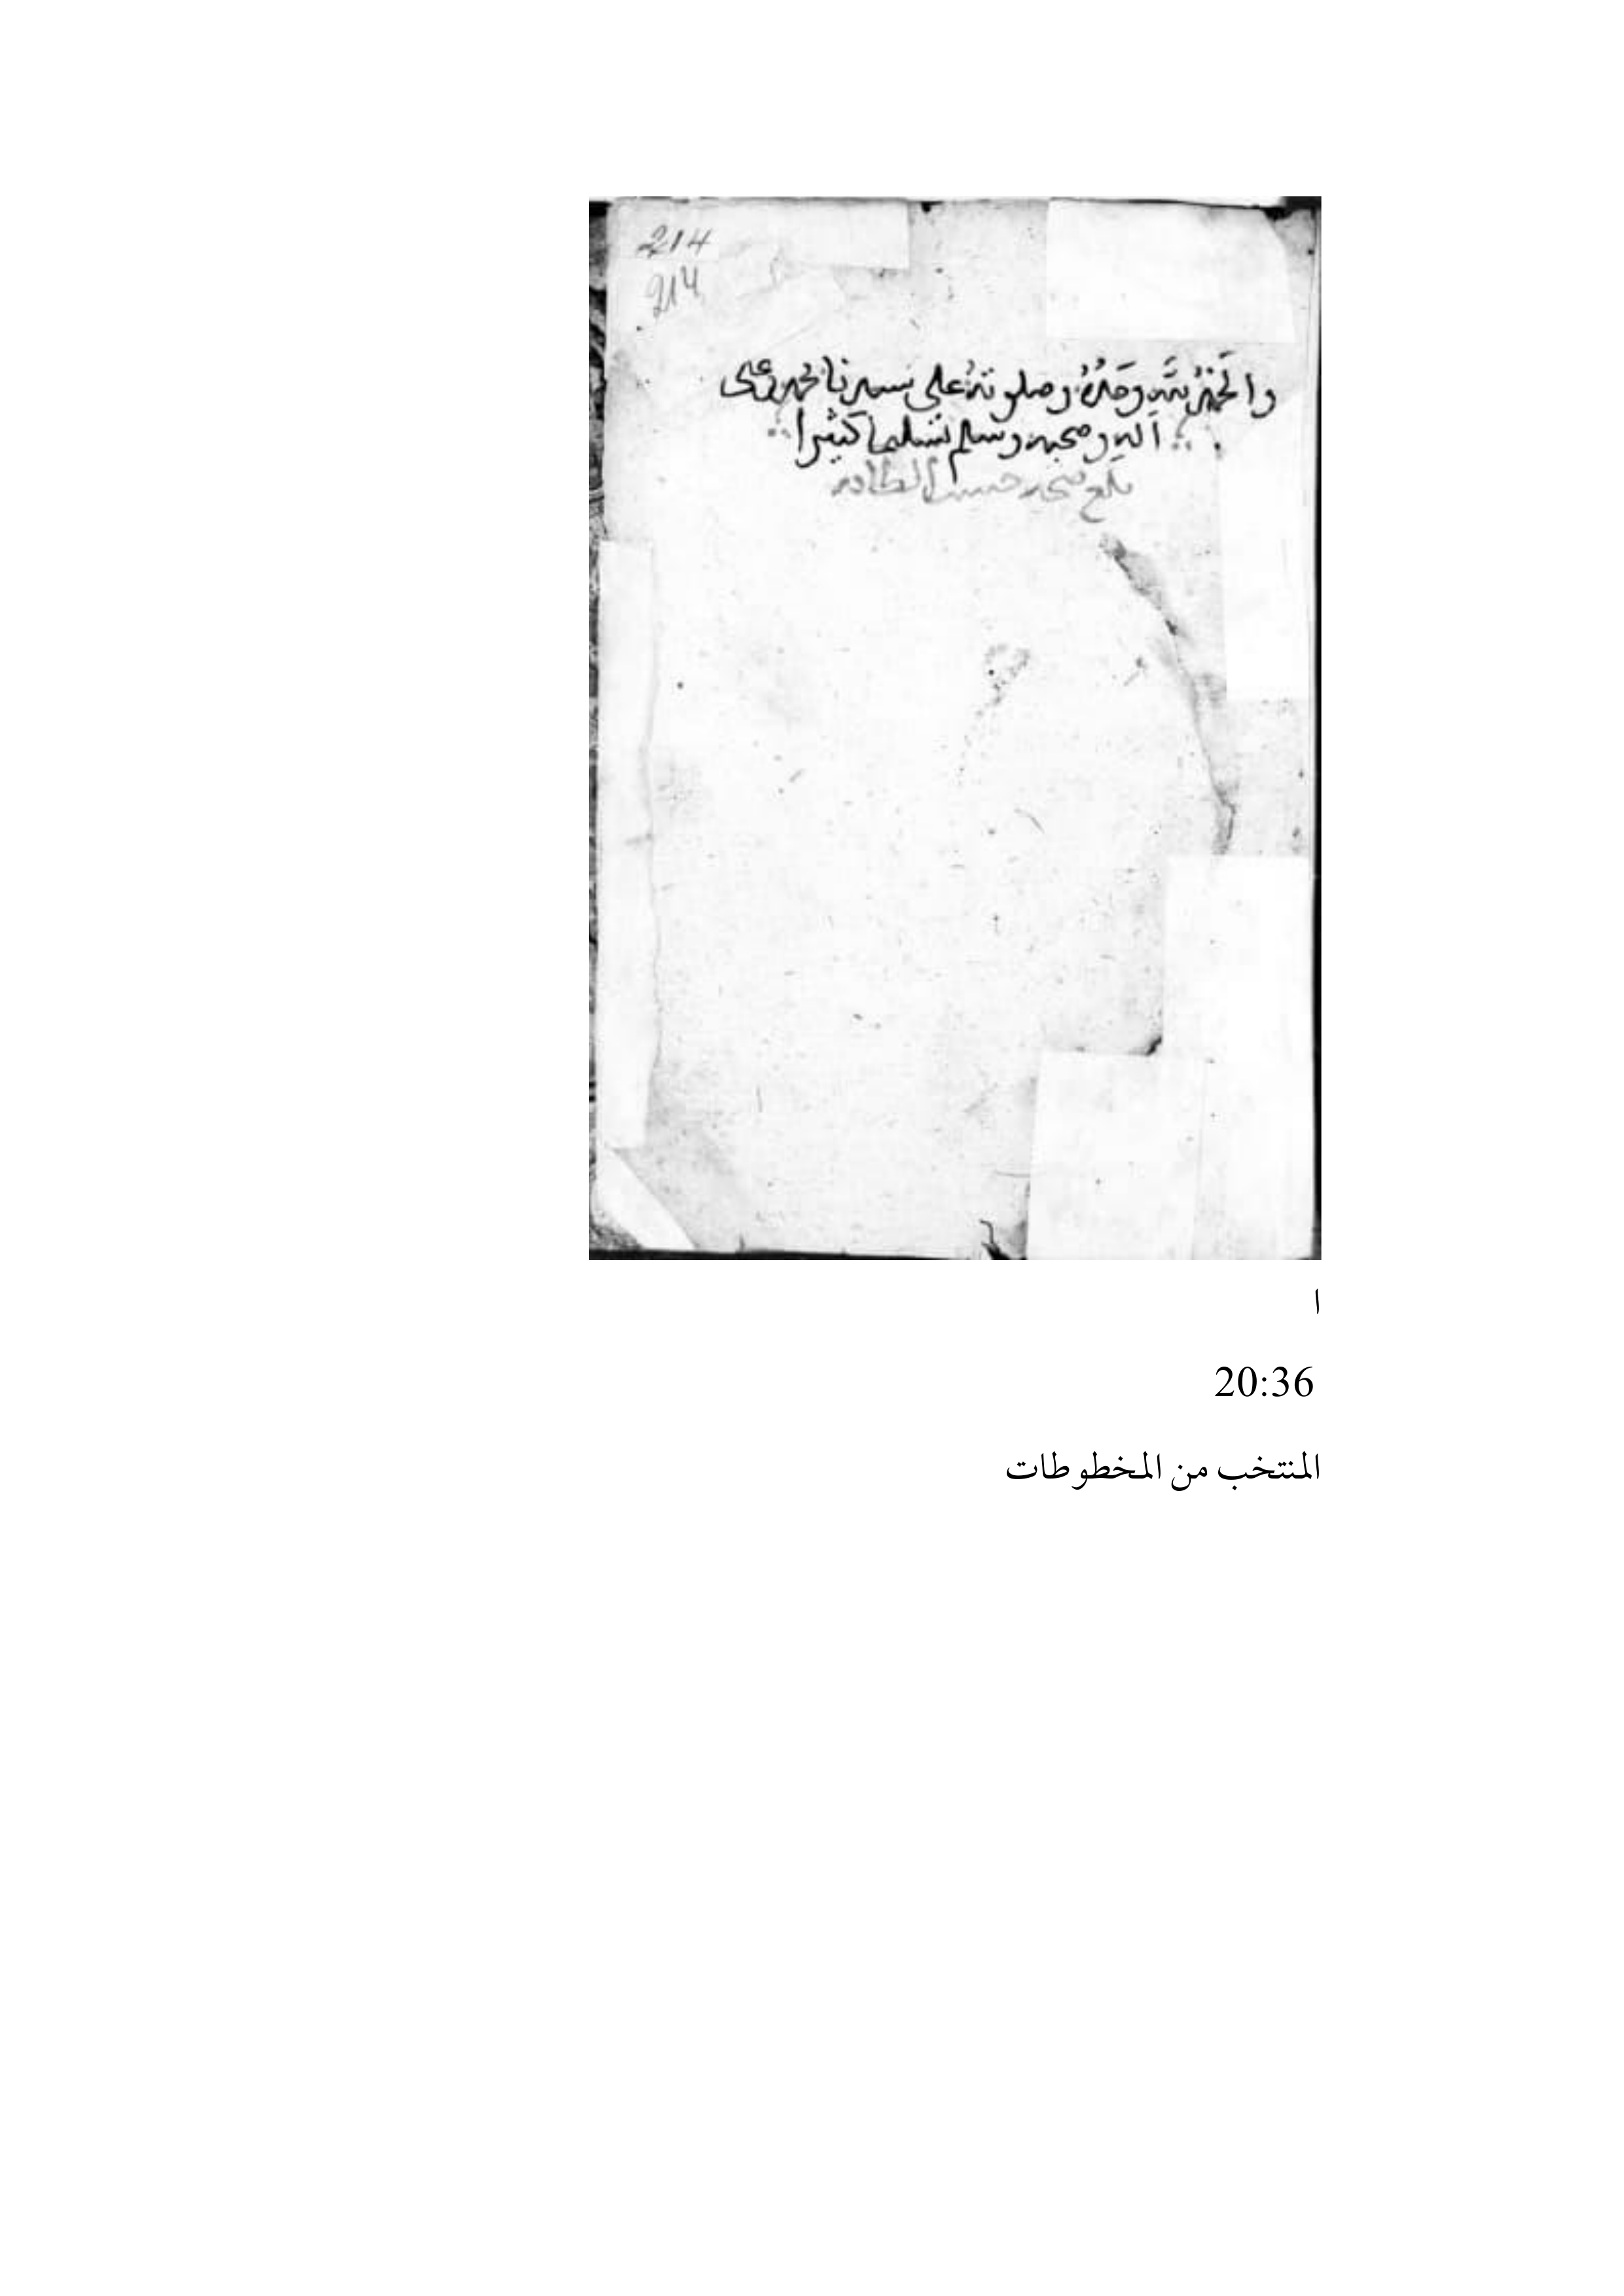 214
214
والحَمْدُ لِلَّهِ وحَدُهُ وصلوتهُ على سيدنا محمد وعلى
آله وصحبه وسلم تسليما كثيرا
بلغ محمد حسن
ا
20:36
المنتخب من المخطوطات